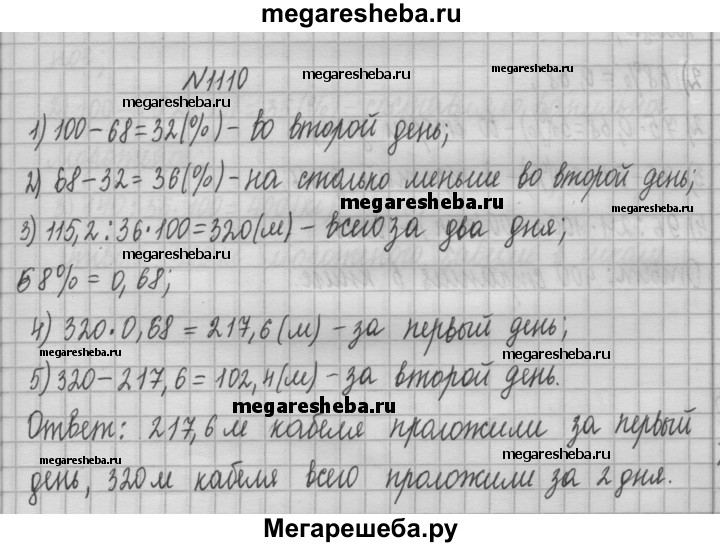 megaresheba.ru
N1110
megaresheba.ru
megaresheba.ru
1) 100-68=32(%)-во второй день;
megaresheba.ru
megaresheba.ru
2) 68-32=36(%)-на столько меньше во второй день;
megaresheba.ru
3) 115,2:36·100=320(м)-всего за два дня;
megaresheba.ru
megaresheba.ru
68%=0,68;
megaresheba.ru
4) 320·0,68=217,6(м)-за первый день;
megaresheba.ru
megaresheba.ru
5) 320-217,6=102,4(м)-за второй день.
megaresheba.ru
Ответ: 217,6м кабеля проложили за первый
megaresheba.ru
megaresheba.ru
день, 320м кабеля всего проложили за 2 дня.
Мегарешеба.ру